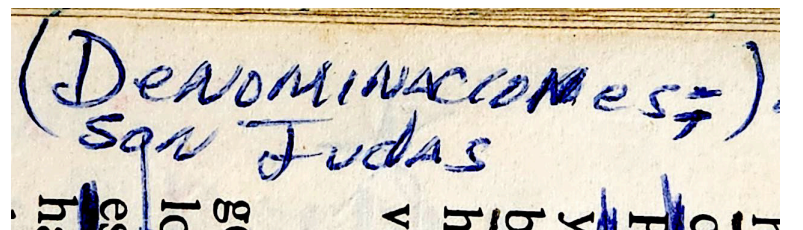 (DeNOMINACIONes;).
son Judas